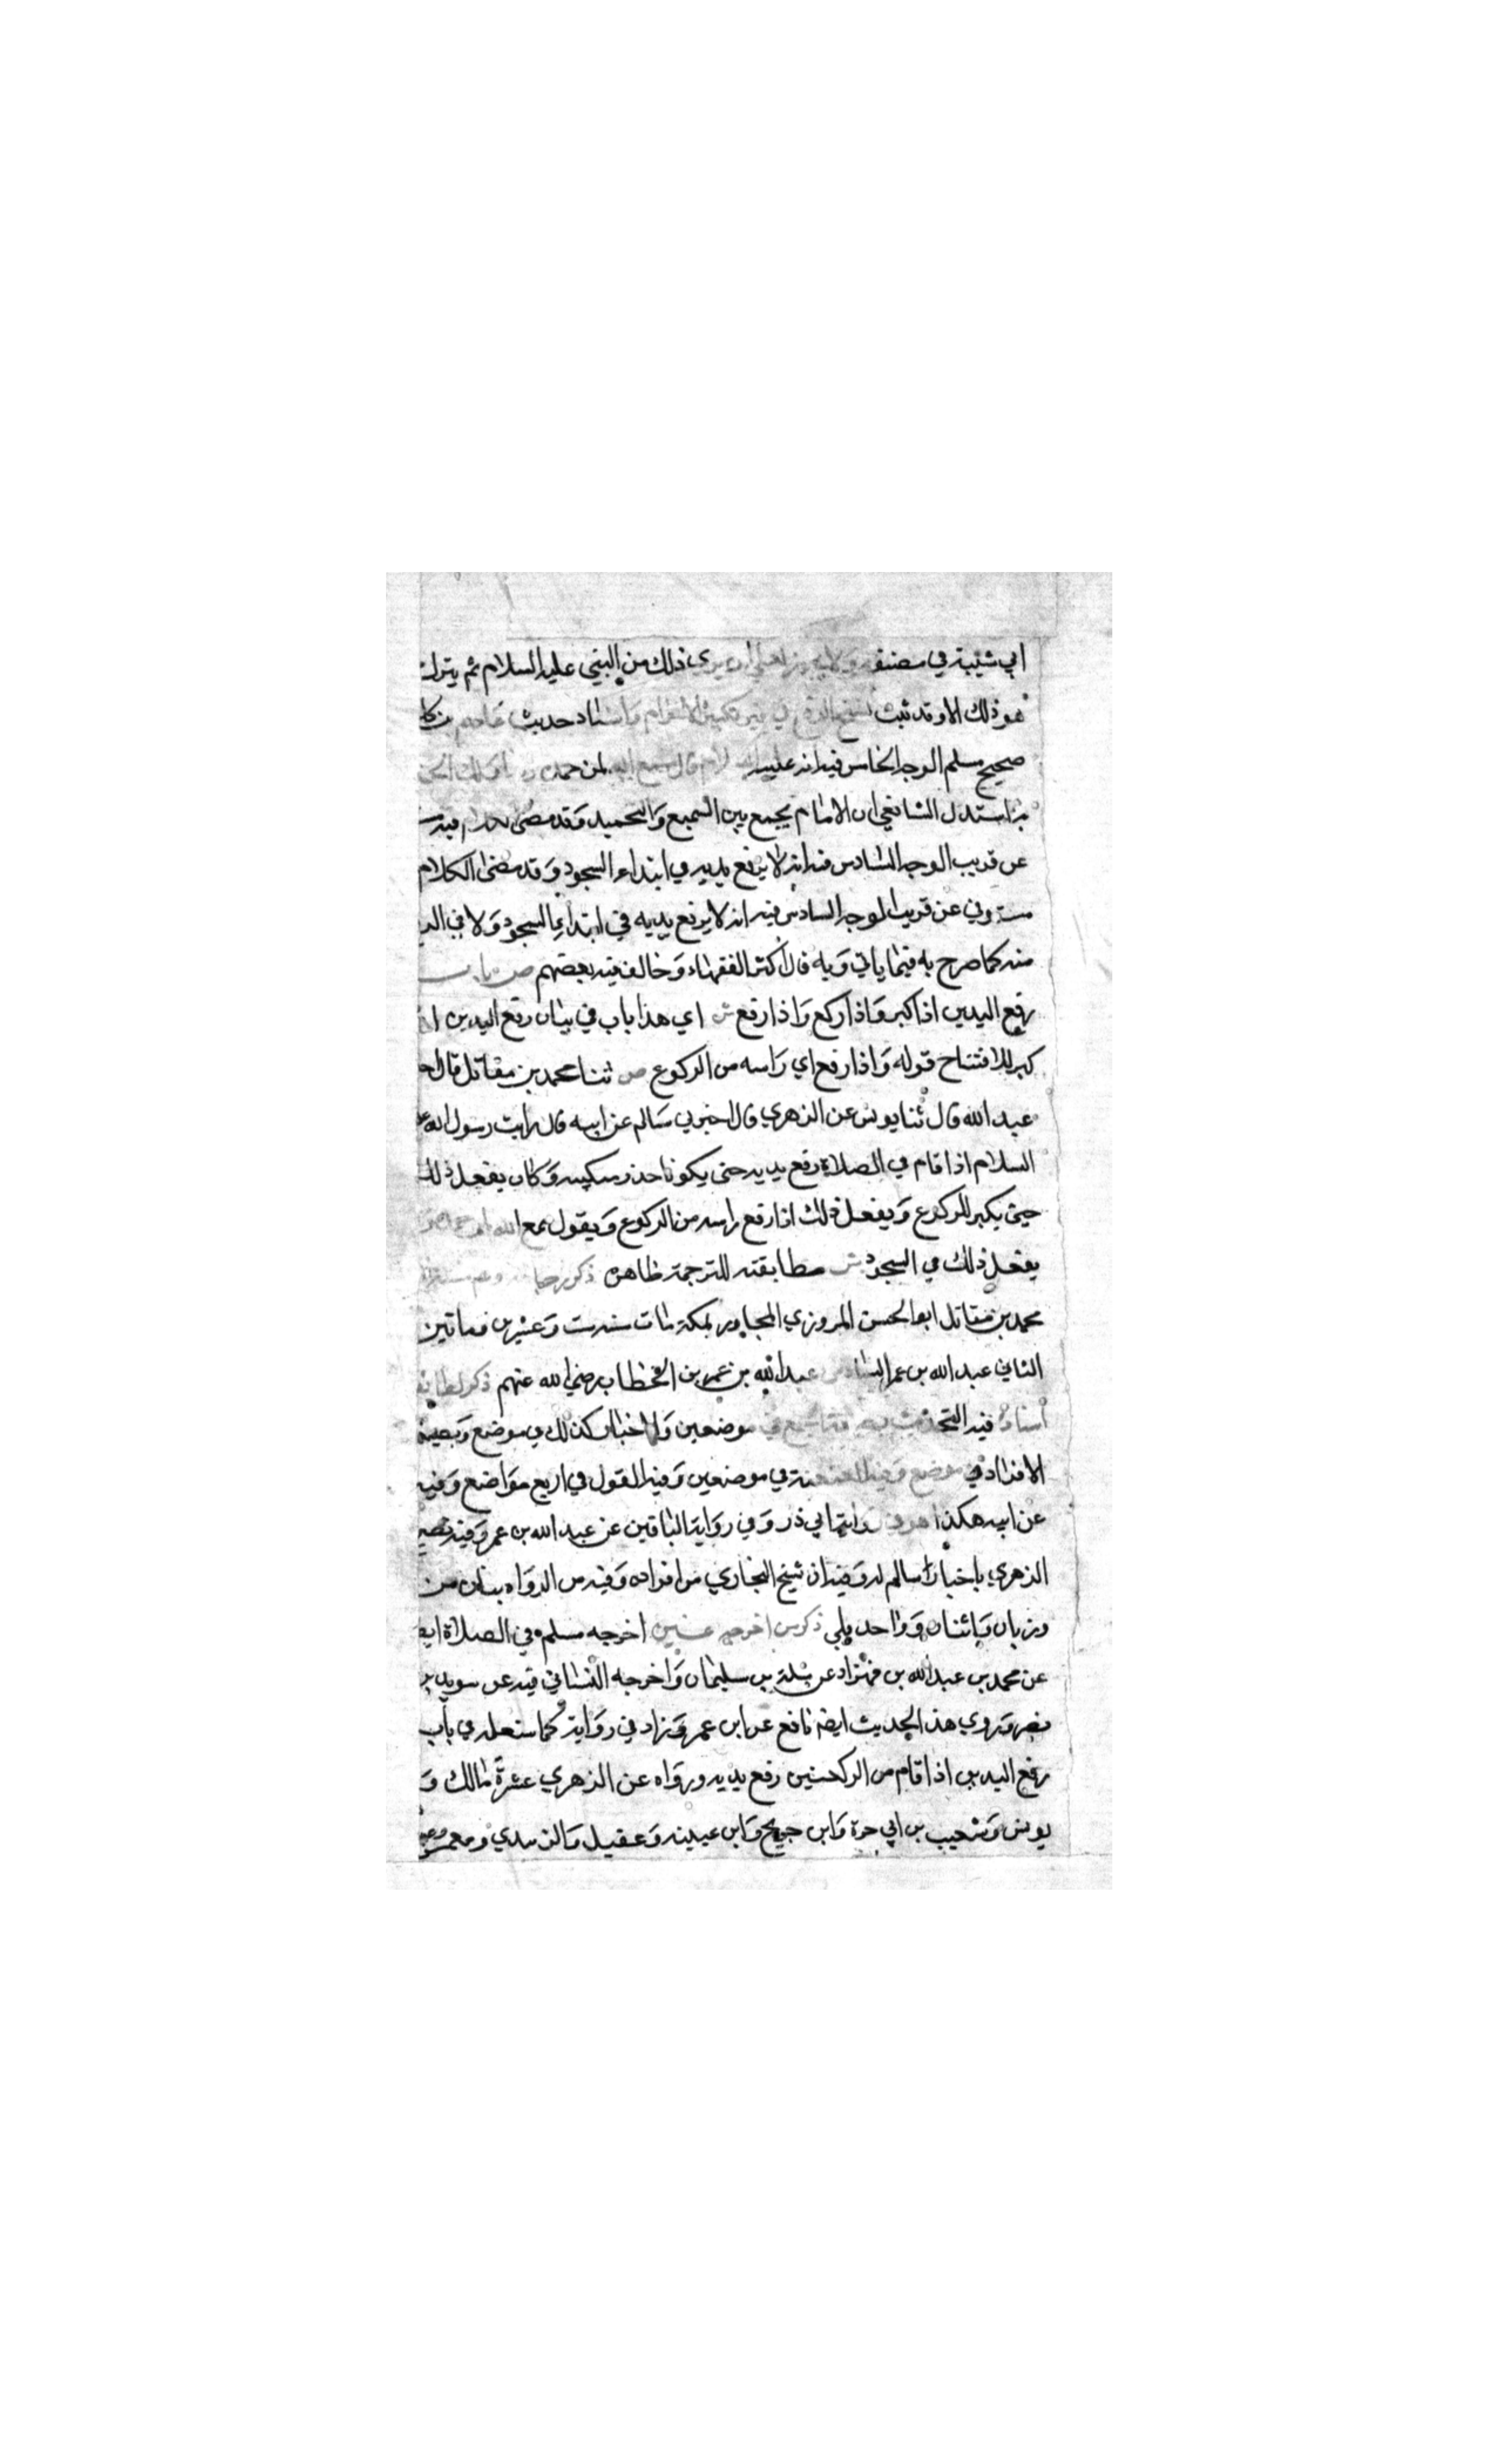 ابي شيبة في مصنفه ولا يجوز لعلي ان يري ذلك من النبي عليه السلام ثم يترك
هو ذلك الا وقد ثبت نسخ الرفع في غير تكبيرة الاحرام واسناد حديث عاصم بن كل
صحيح مسلم الوجه الخامس فيه انه عليه السلام قال سمع الله لمن حمده ربنا ولك الحمد
استدل الشافعي ان الامام يجمع بين السميع والتحميد وقد مضى الكلام فيه
عن قريب الوجه السادس فيه انه لا يرفع يديه في ابتداء السجود وقد مضى الكلام
عن قريب الوجه السادس فيه انه لا يرفع يديه في ابتداء السجود ولا في الر
منه كما صرح به فيما ياتي وبه قال اكثر الفقهاء وخالف فيه بعضهم ص باب
رفع اليدين اذا كبر واذا ركع واذا رفع ش اي هذا باب في بيان رفع اليدين اذا
كبر للافتتاح قوله واذا رفع اي راسه من الركوع ص ثنا محمد بن مقاتل قال اخ
عبد الله قال ثنا يونس عن الزهري قال اخبرني سالم عن ابيه قال رايت رسول الله ع
السلام اذا قام في الصلاة رفع يديه حتى يكونا حذو منكبيه وكان يفعل ذلك
حين يكبر للركوع ويفعل ذلك اذا رفع راسه من الركوع ويقول سمع الله لمن حمده ولا
يفعل ذلك في السجود ش مطابقته للترجمة ظاهرة ذكر رجاله وهم ستة
محمد بن مقاتل ابو الحسن المروزي المجاور بمكة مات سنة ست وعشرين ومائتين
الثاني عبد الله بن عمر السادس عبد الله بن عمر بن الخطاب رضي الله عنهم ذكر لطائف
اسناده فيه التحديث بصيغة الجمع في موضعين والاخبار كذلك في موضع وبصيغة
الافراد في موضع وفيه العنعنة في موضعين وفيه القول في اربع مواضع وفيه
عن ابيه هكذا هو في رواية ابي ذر وفي رواية الباقين عن عبد الله بن عمر وفيه تصر
الزهري باخبار سالم له وفيه ان شيخ البخاري من افراده وفيه من الرواه بنان من
وزيان واثنان وواحد يلي ذكر من اخرجه غيره اخرجه مسلم في الصلاة ايض
عن محمد بن عبد الله بن قهزاد عن سلمة بن سليمان واخرجه النسائي فيه عن سويد بن
نصر وروي هذا الحديث ايضا نافع عن ابن عمر وزاد في رواية كما ستعلم في باب
رفع اليدين اذا قام من الركعتين رفع يديه ورواه عن الزهري عشرة مالك و
يونس وشعيب بن ابي حمزة وابن جريج وابن عيينه وعقيل والزبيدي ومعمر